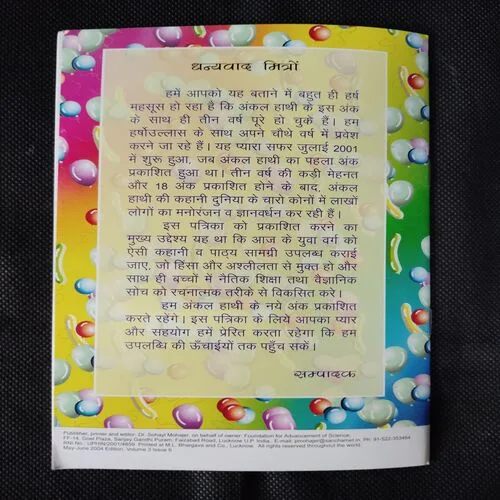 धन्यवाद मित्रों
हमें आपको यह बताने में बहुत ही हर्ष
महसूस हो रहा है कि अंकल हाथी के इस अंक
के साथ ही तीन वर्ष पूरे हो चुके हैं। हम
हर्षोउल्लास के साथ अपने चौथे वर्ष में प्रवेश
करने जा रहे हैं। यह प्यारा सफर जुलाई 2001
में शुरू हुआ, जब अंकल हाथी का पहला अंक
प्रकाशित हुआ था। तीन वर्ष की कड़ी मेहनत
और 18 अंक प्रकाशित होने के बाद, अंकल
हाथी की कहानी दुनिया के चारो कोनों में लाखों
लोगों का मनोरंजन व ज्ञानवर्धन कर रही हैं।
इस पत्रिका को प्रकाशित करने का
मुख्य उद्देश्य यह था कि आज के युवा वर्ग को
ऐसी कहानी व पाठ्य सामग्री उपलब्ध कराई
जाए, जो हिंसा और अश्लीलता से मुक्त हो और
साथ ही बच्चों में नैतिक शिक्षा तथा वैज्ञानिक
सोच को रचनात्मक तरीके से विकसित करे।
हम अंकल हाथी के नये अंक प्रकाशित
करते रहेंगे। इस पत्रिका के लिये आपका प्यार
और सहयोग हमें प्रेरित करता रहेगा कि हम
उपलब्धि की ऊँचाईयों तक पहुँच सकें।
सम्पादक
Publisher, printer and editor: Dr. Sohayl Mohajer, on behalf of owner: Foundation for Advancement of Science,
FF-14, Goel Plaza, Sanjay Gandhi Puram, Faizabad Road, Lucknow U.P. India, E-mail: pmohajer@sancharnet.in, Ph: 91-522-353484
RNI No.: UPHIN/2001/4659. Printed at M.L. Bhargava and Co., Lucknow. All rights reserved throughout the world.
May-June 2004 Edition: Volume 3 Issue 6